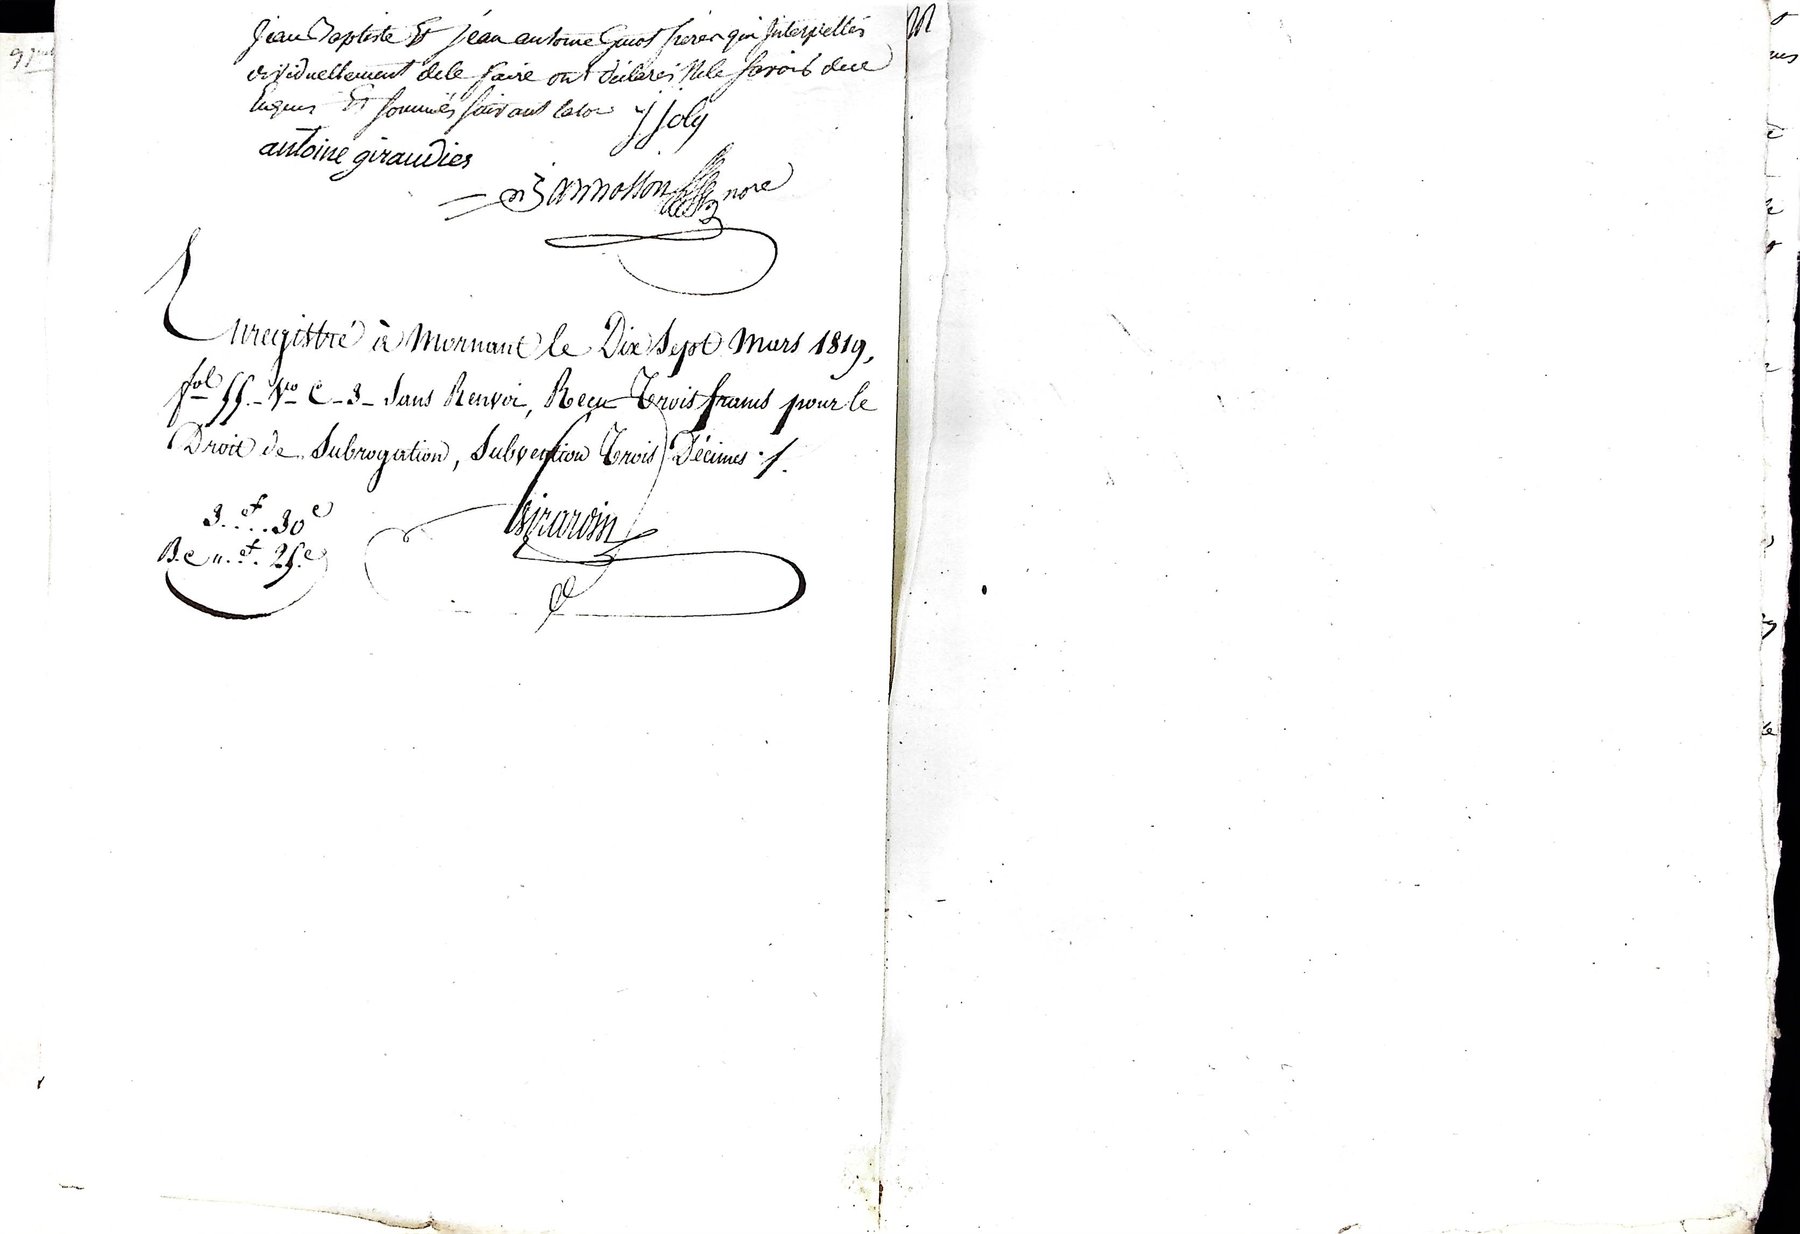 Jean Baptiste Et jean antoine Guiot freres qui Interpellés
dividuellement dele faire ont déclarés Nele savoir dece
Enquis Et sommés suivant laloi j joly
antoine giraudier
nore
Enregistré à Mornant le Dix Sept Mars 1819,
fol. 55. Vo C. 3. Sans Renvoi, Reçu Trois francs pour le
Droit de Subrogation, Subvention Trois Décimes ./.
3.f. 30c
B.e ".f. 25.c
Girardin